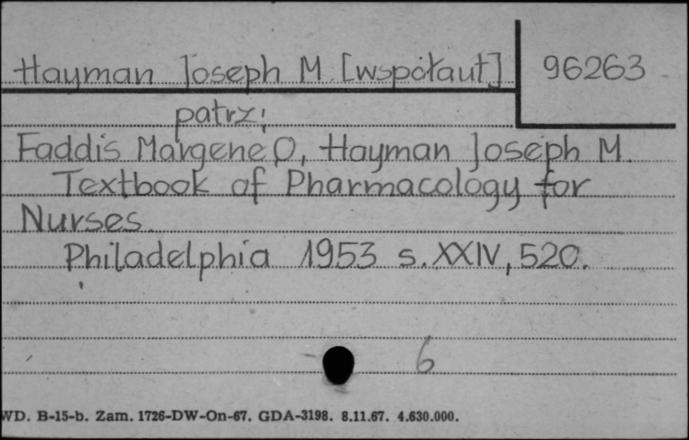 Hayman Joseph M. [współaut] 96263
patrz:
Faddis Margene O, Hayman Joseph M.
Textbook of Pharmacology for
Nurses.
Philadelphia 1953 s. XXIV, 520.
6
WD. B-15-b. Zam. 1726-DW-On-67. GDA-3198. 8.11.67. 4.630.000.